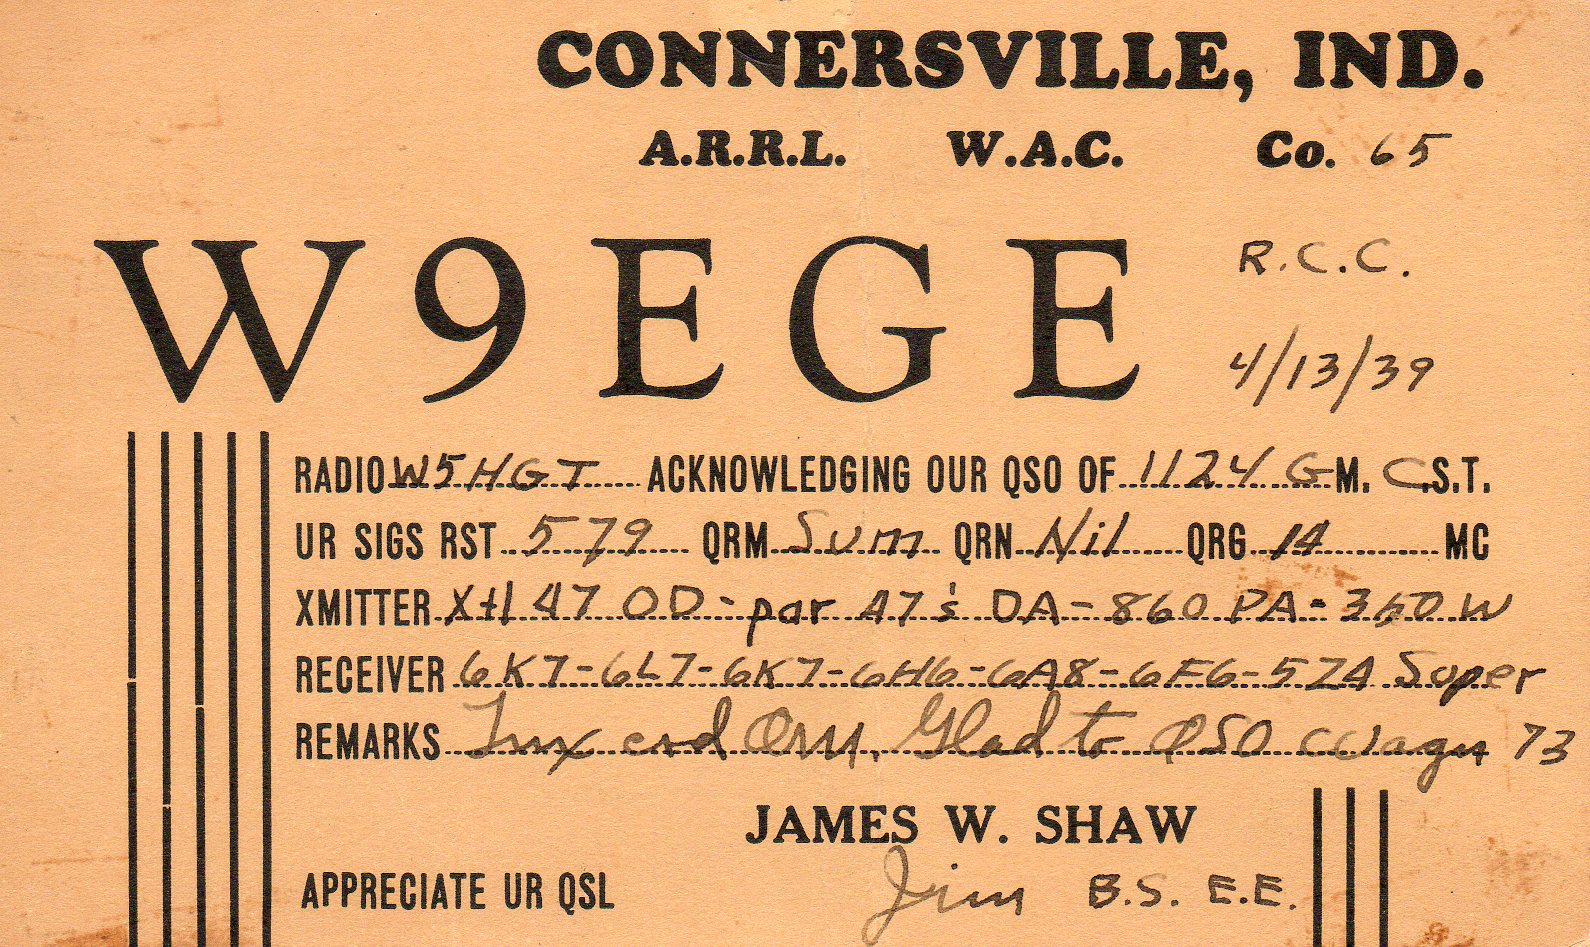 CONNERSVILLE, IND.
A.R.R.L. W.A.C. Co. 65
W9EGE R.C.C.
4/13/39
RADIO W5HGT ACKNOWLEDGING OUR QSO OF 1124 G M. C.S.T.
UR SIGS RST 579 QRM Sum QRN Nil QRG 14 MC
XMITTER Xtl 47 OD - par 47's DA - 860 PA - 350 W
RECEIVER 6K7-6L7-6K7-6H6-6A8-6F6-5Z4 Super
REMARKS Tnx crd Om. Glad to QSO cuagn 73
JAMES W. SHAW
APPRECIATE UR QSL Jim B.S. E.E.